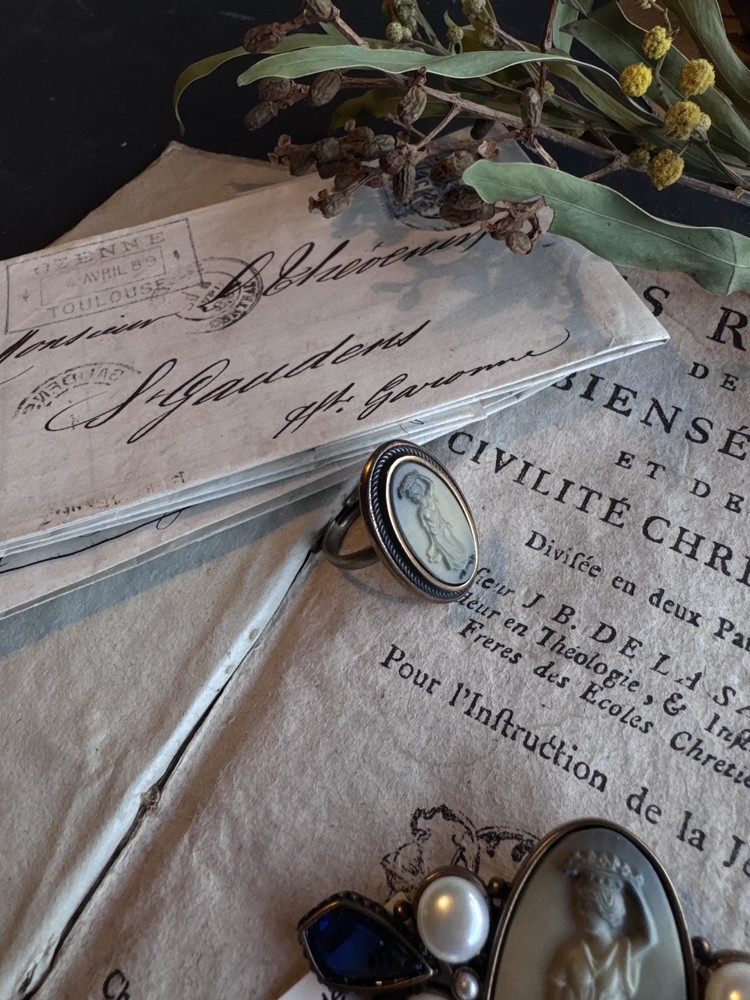 OZENNE
AVRIL 89
TOULOUSE
Monsieur
Thévenin
St. Gaudens
Hte. Garonne
S R
DE
BIENSÉ
ET DE
CIVILITÉ CHRE
Diviſée en deux Par
ſieur J B. DE LA SA
teur en Théologie, & Inſt
Freres des Ecoles Chretie
Pour l'Inſtruction de la Je
Ch